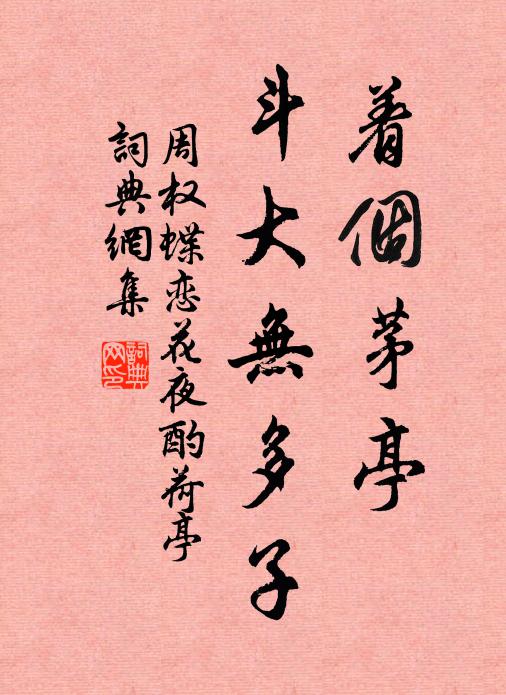 着個茅亭
斗大無多子
周权蝶恋花夜酌荷亭
詞典網集
詞典網印